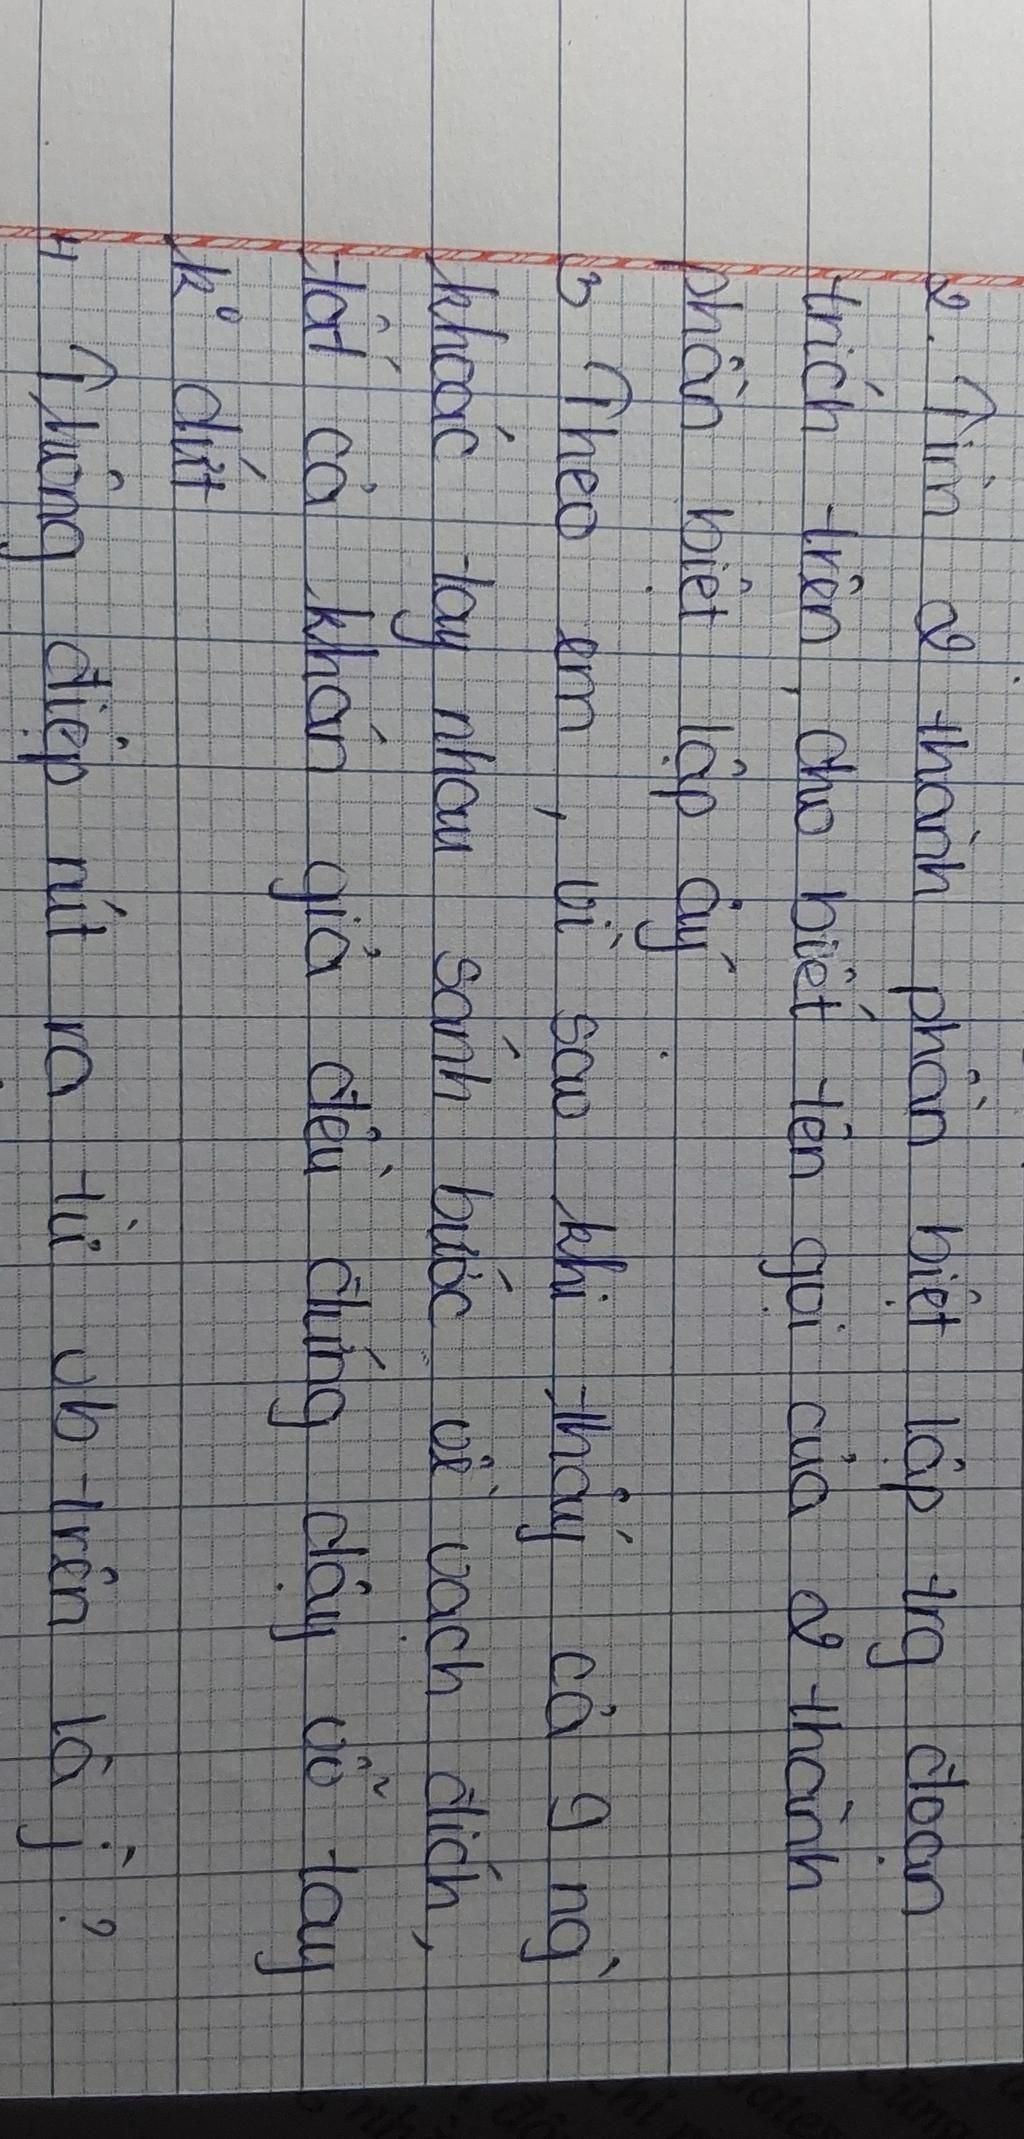 2. Tìm 2 thành phần biệt lập trg đoạn
trích trên, cho biết tên gọi của 2 thành
phần biệt lập ấy
3 Theo em, vì sao khi thấy cả 9 ng`
khoác tay nhau sánh bước về vạch đích,
tất cả khán giả đều đứng dậy vỗ tay
k° dứt
4 Thông điệp rút ra từ vb trên là j` ?